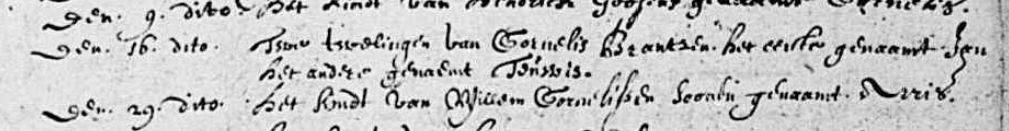 Den. 9. dito. Het Kindt van Hendrick Goosens genaamt Cornelis.
Den. 16. dito. Twe twelingen van Cornelis Brantzen. het eerste genaamt. Jan
het andere genaemt Teuwis.
Den. 29. dito. Het Kindt van Willem Cornelissen genaamt. Arris.